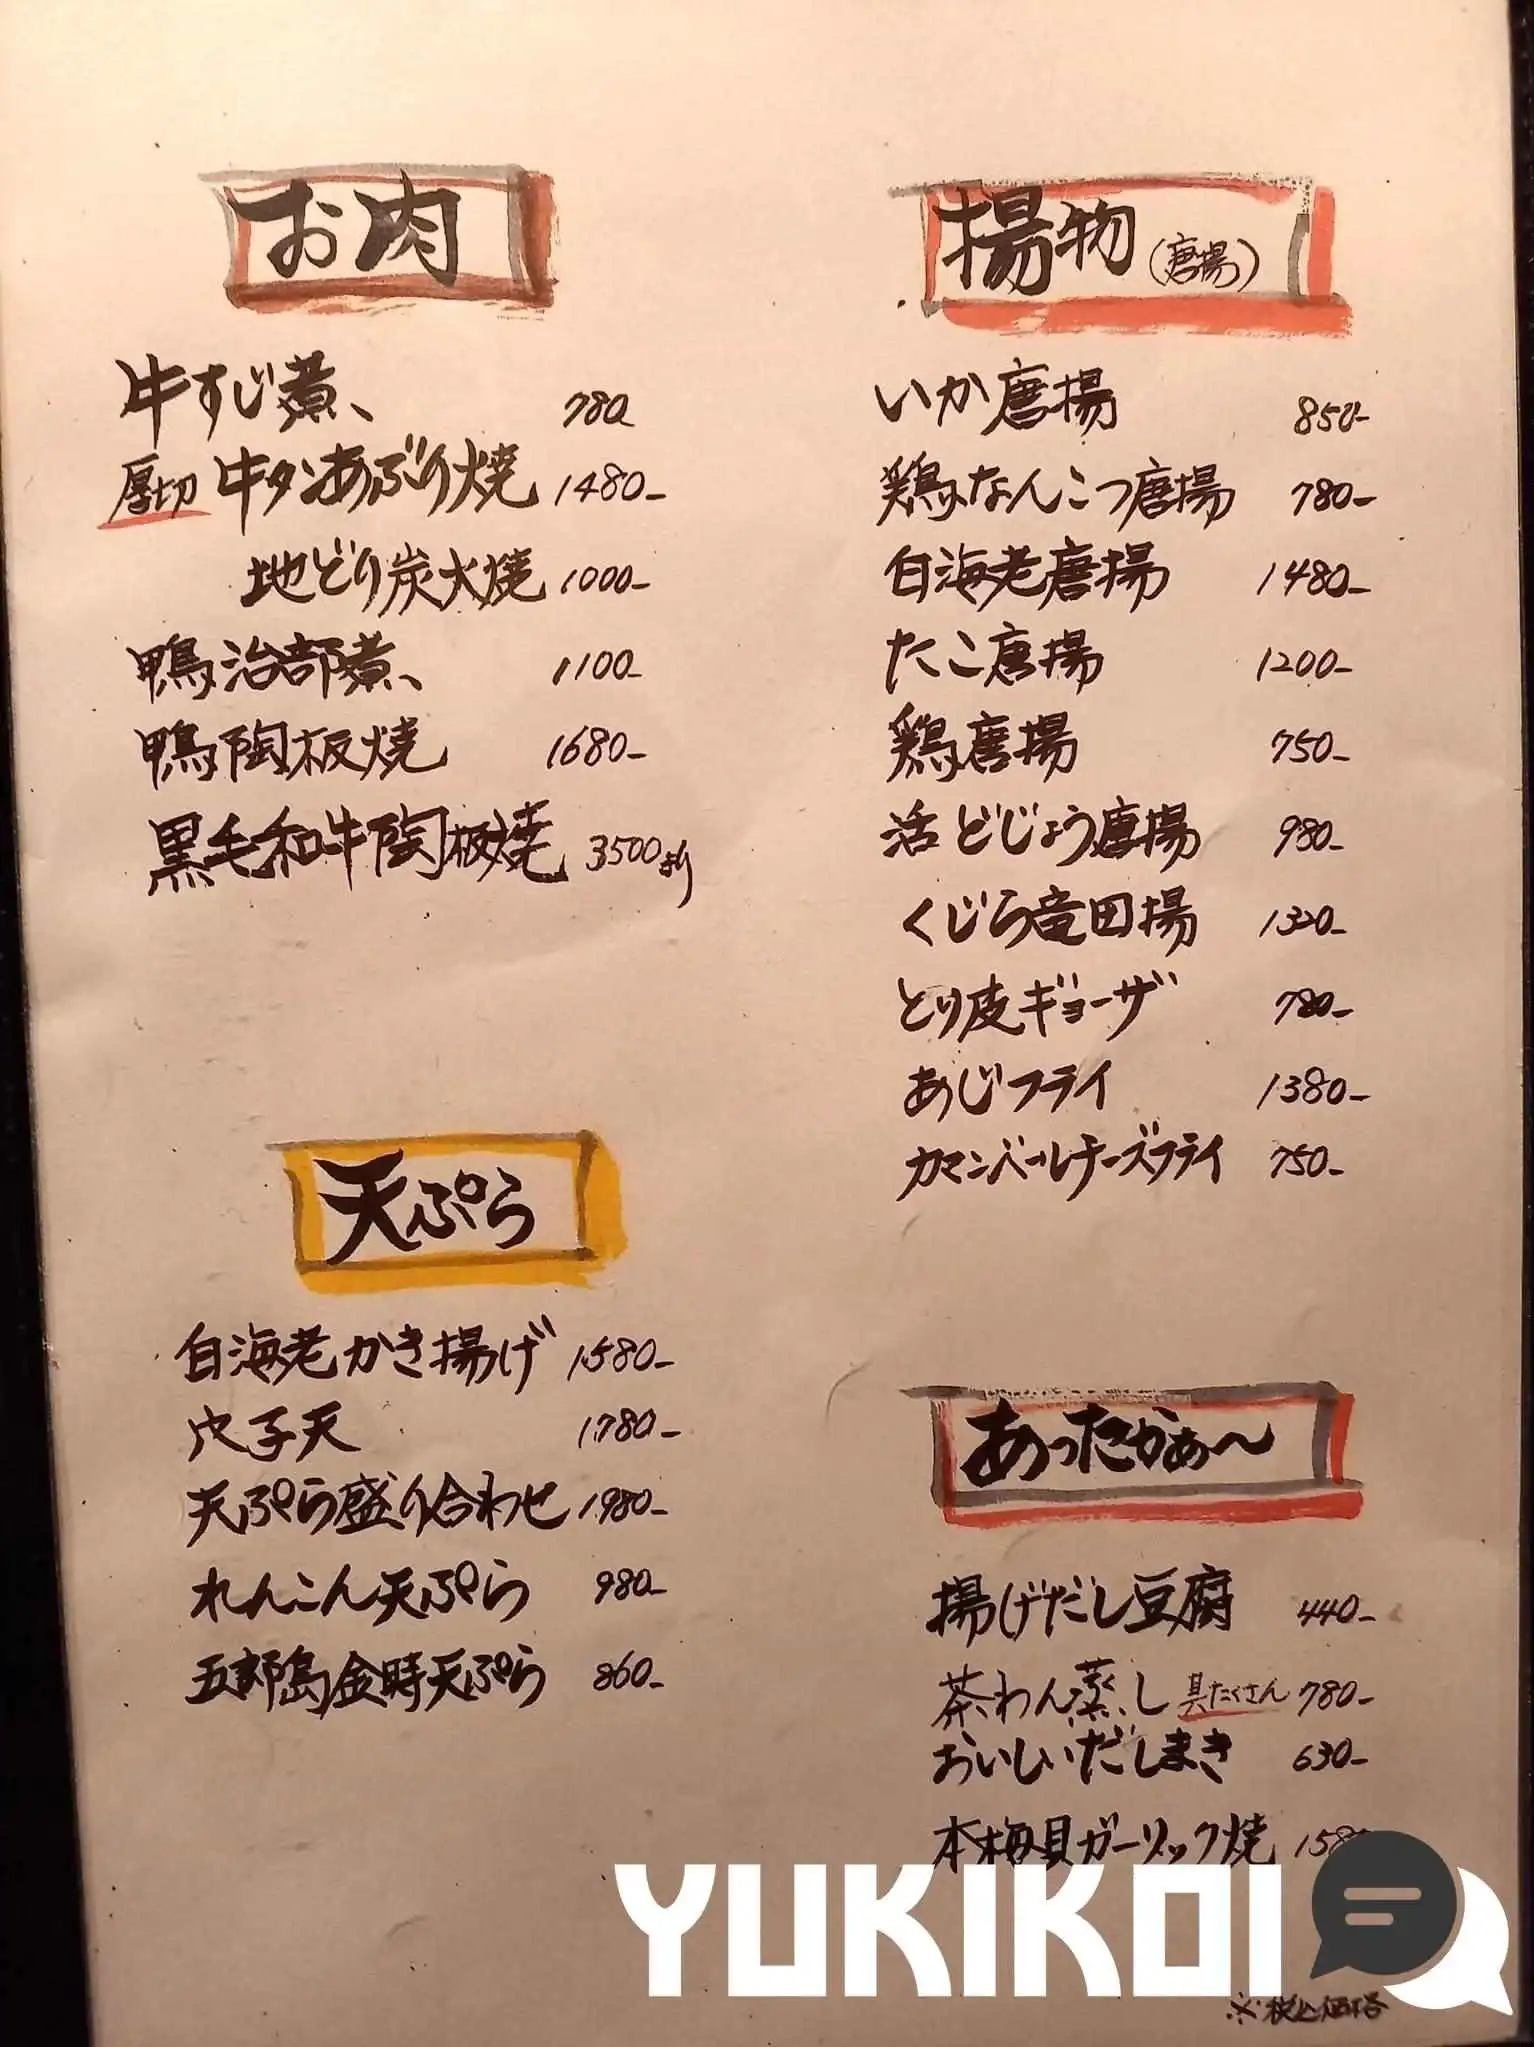 お肉
牛すじ煮、 780-
厚切 牛タンあぶり焼 1480-
地どり炭火焼 1000-
鴨治部煮、 1100-
鴨陶板焼 1680-
黒毛和牛陶板焼 3500より
天ぷら
白海老かき揚げ 1580-
穴子天 1780-
天ぷら盛り合わせ 1980-
れんこん天ぷら 980-
五郎島金時天ぷら 860-
揚物(唐揚)
いか唐揚 850-
鶏なんこつ唐揚 780-
白海老唐揚 1480-
たこ唐揚 1200-
鶏唐揚 750-
活どじょう唐揚 980-
くじら竜田揚 1320-
とり皮ギョーザ 780-
あじフライ 1380-
カマンベールチーズフライ 750-
あったかぁ〜
揚げだし豆腐 440-
茶わん蒸し 具たくさん 780-
おいしいだしまき 630-
本梅貝ガーリック焼
YUKIKOI
※税込価格